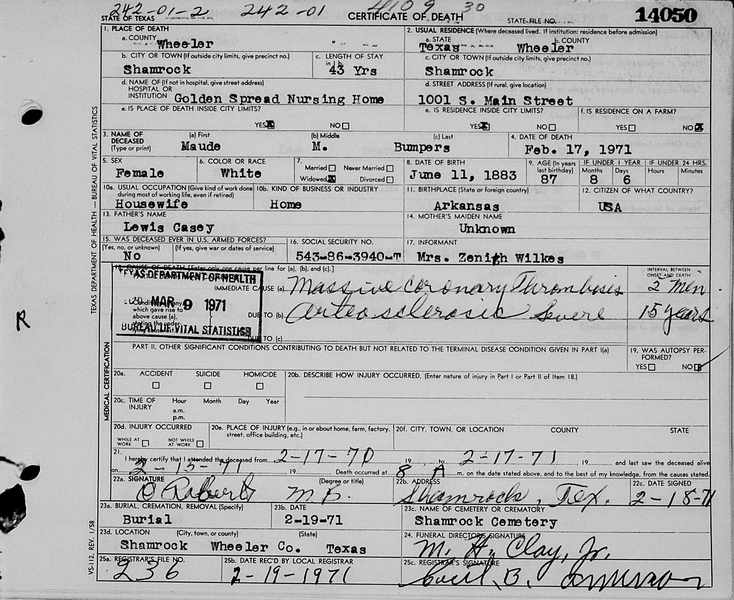 242-01-2 242-01 4109 30
STATE OF TEXAS CERTIFICATE OF DEATH STATE FILE NO. 14050
1. PLACE OF DEATH 2. USUAL RESIDENCE (Where deceased lived. If institution: residence before admission)
a. COUNTY Wheeler a. STATE Texas b. COUNTY Wheeler
b. CITY OR TOWN (If outside city limits, give precinct no.) c. LENGTH OF STAY in 1 b c. CITY OR TOWN (If outside city limits, give precinct no.)
Shamrock 43 Yrs Shamrock
d. NAME OF (If not in hospital, give street address) HOSPITAL OR INSTITUTION d. STREET ADDRESS (If rural, give location)
Golden Spread Nursing Home 1001 S. Main Street
e. IS PLACE OF DEATH INSIDE CITY LIMITS? e. IS RESIDENCE INSIDE CITY LIMITS? f. IS RESIDENCE ON A FARM?
YES NO YES NO YES NO
3. NAME OF DECEASED (Type or print) (a) First (b) Middle (c) Last 4. DATE OF DEATH
Maude M. Bumpers Feb. 17, 1971
5. SEX 6. COLOR OR RACE 7. Married Never Married Widowed Divorced 8. DATE OF BIRTH 9. AGE (In years last birthday) IF UNDER 1 YEAR IF UNDER 24 HRS.
Months Days Hours Minutes
Female White June 11, 1883 87 8 6
10a. USUAL OCCUPATION (Give kind of work done during most of working life, even if retired) 10b. KIND OF BUSINESS OR INDUSTRY 11. BIRTHPLACE (State or foreign country) 12. CITIZEN OF WHAT COUNTRY?
Housewife Home Arkansas USA
13. FATHER'S NAME 14. MOTHER'S MAIDEN NAME
Lewis Casey Unknown
15. WAS DECEASED EVER IN U.S. ARMED FORCES? 16. SOCIAL SECURITY NO. 17. INFORMANT
(Yes, no, or unknown) (If yes, give war or dates of service)
No 543-86-3940-T Mrs. Zenith Wilkes
18. CAUSE OF DEATH [Enter only one cause per line for (a), (b), and (c).] INTERVAL BETWEEN ONSET AND DEATH
TEXAS DEPARTMENT OF HEALTH
IMMEDIATE CAUSE (a) Massive Coronary Thromboses 2 Min
MAR 9 1971
DUE TO (b) Arteosclerosis Severe 15 years
which gave rise to above cause (a),
BUREAU OF VITAL STATISTICS
DUE TO (c)
PART II. OTHER SIGNIFICANT CONDITIONS CONTRIBUTING TO DEATH BUT NOT RELATED TO THE TERMINAL DISEASE CONDITION GIVEN IN PART I(a) 19. WAS AUTOPSY PERFORMED?
YES NO
20a. ACCIDENT SUICIDE HOMICIDE 20b. DESCRIBE HOW INJURY OCCURRED. (Enter nature of injury in Part I or Part II of Item 18.)
20c. TIME OF INJURY Hour Month Day Year
a.m.
p.m.
20d. INJURY OCCURRED 20e. PLACE OF INJURY (e.g., in or about home, farm, factory, street, office building, etc.) 20f. CITY, TOWN, OR LOCATION COUNTY STATE
WHILE AT WORK NOT WHILE AT WORK
21. I hereby certify that I attended the deceased from 2-17-70 19 2-17-71 19 and last saw the deceased alive
2-15-71 19 Death occurred at 8 A m. on the date stated above, and to the best of my knowledge, from the causes stated.
22a. SIGNATURE (Degree or title) 22b. ADDRESS 22c. DATE SIGNED
Robert M.D. Shamrock, Tex. 2-18-71
23a. BURIAL, CREMATION, REMOVAL (Specify) 23b. DATE 23c. NAME OF CEMETERY OR CREMATORY
Burial 2-19-71 Shamrock Cemetery
23d. LOCATION (City, town, or county) (State) 24. FUNERAL DIRECTOR'S SIGNATURE
Shamrock Wheeler Co. Texas M. H. Clay, Jr.
25a. REGISTRAR'S FILE NO. 25b. DATE REC'D BY LOCAL REGISTRAR 25c. REGISTRAR'S SIGNATURE
236 2-19-1971 Cecil B.
TEXAS DEPARTMENT OF HEALTH — BUREAU OF VITAL STATISTICS
MEDICAL CERTIFICATION
VS-112, REV. 1/58
R